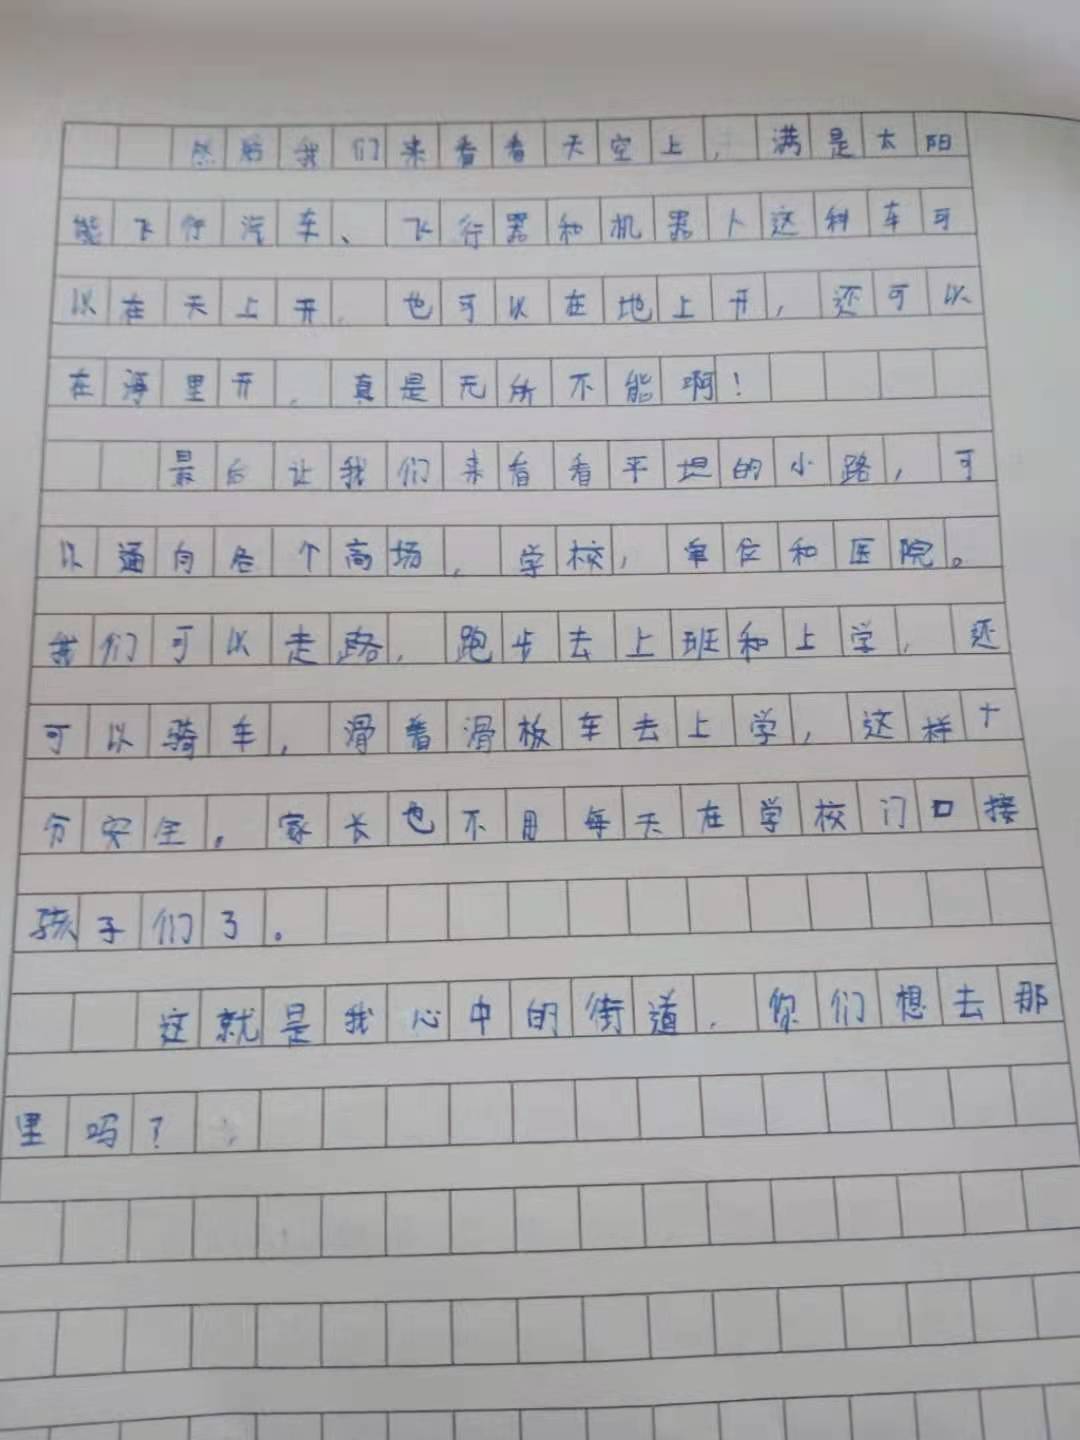 然后我们来看看天空上，满是太阳
能飞行汽车、飞行器和机器人这种车可
以在天上开，也可以在地上开，还可以
在海里开，真是无所不能啊！
最后让我们来看看平坦的小路，可
以通向各个商场，学校，单位和医院。
我们可以走路，跑步去上班和上学，还
可以骑车，滑着滑板车去上学，这样十
分安全，家长也不用每天在学校门口接
孩子们了。
这就是我心中的街道，你们想去那
里吗？